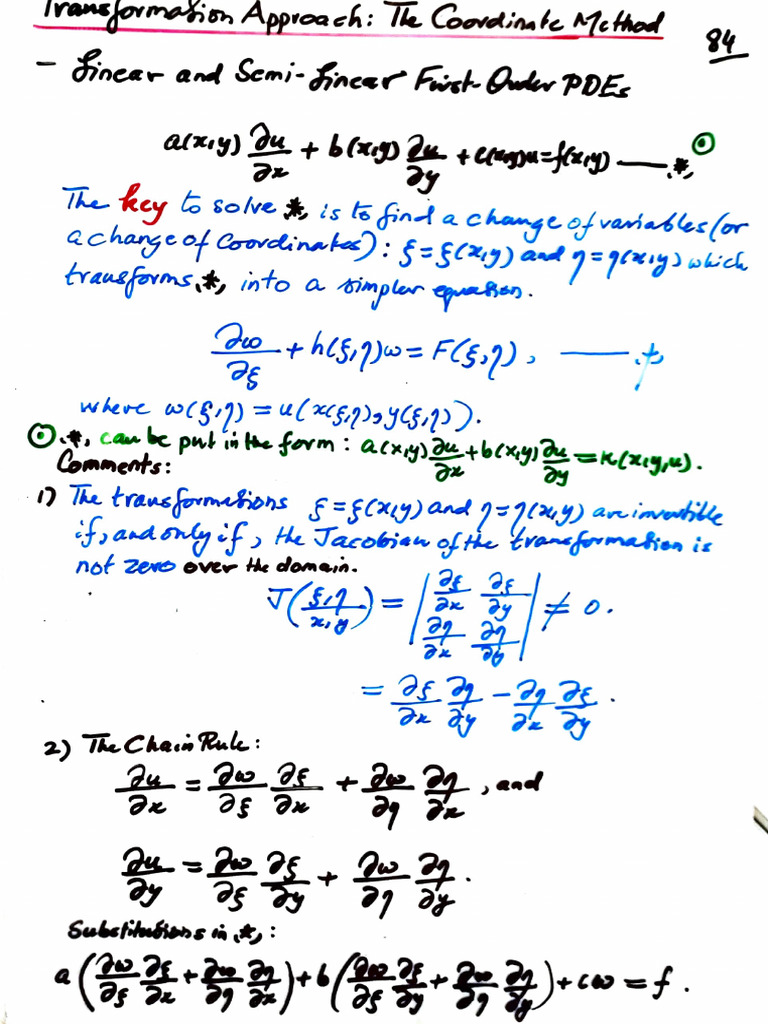 Transformation Approach: The Coordinate Method
84
- Linear and Semi-Linear First-Order PDEs
a(x,y) ∂u/∂x + b(x,y) ∂u/∂y + c(x,y)u = f(x,y) —— .*, ⊙
The key to solve .*, is to find a change of variables (or
a change of coordinates): ξ = ξ(x,y) and η = η(x,y) which
transforms .*, into a simpler equation.
∂ω/∂ξ + h(ξ,η)ω = F(ξ,η), —— .†,
where ω(ξ,η) = u(x(ξ,η), y(ξ,η)).
⊙ .*, can be put in the form: a(x,y) ∂u/∂x + b(x,y) ∂u/∂y = κ(x,y,u).
Comments:
1) The transformations ξ = ξ(x,y) and η = η(x,y) are invertible
if, and only if, the Jacobian of the transformation is
not zero over the domain.
J(ξ,η / x,y) = | ∂ξ/∂x ∂ξ/∂y ; ∂η/∂x ∂η/∂y | ≠ 0.
= ∂ξ/∂x ∂η/∂y - ∂η/∂x ∂ξ/∂y.
2) The Chain Rule:
∂u/∂x = ∂ω/∂ξ ∂ξ/∂x + ∂ω/∂η ∂η/∂x, and
∂u/∂y = ∂ω/∂ξ ∂ξ/∂y + ∂ω/∂η ∂η/∂y.
Substitutions in .*,:
a(∂ω/∂ξ ∂ξ/∂x + ∂ω/∂η ∂η/∂x) + b(∂ω/∂ξ ∂ξ/∂y + ∂ω/∂η ∂η/∂y) + cω = f.